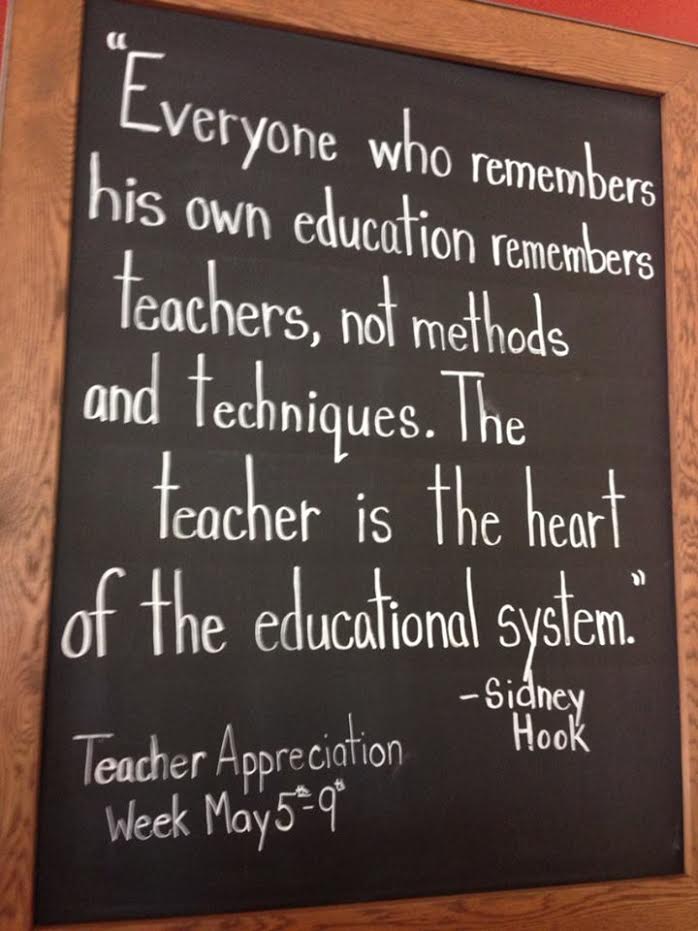 “Everyone who remembers
his own education remembers
teachers, not methods
and techniques. The
teacher is the heart
of the educational system.”
-Sidney
Hook
Teacher Appreciation
Week May 5th-9th